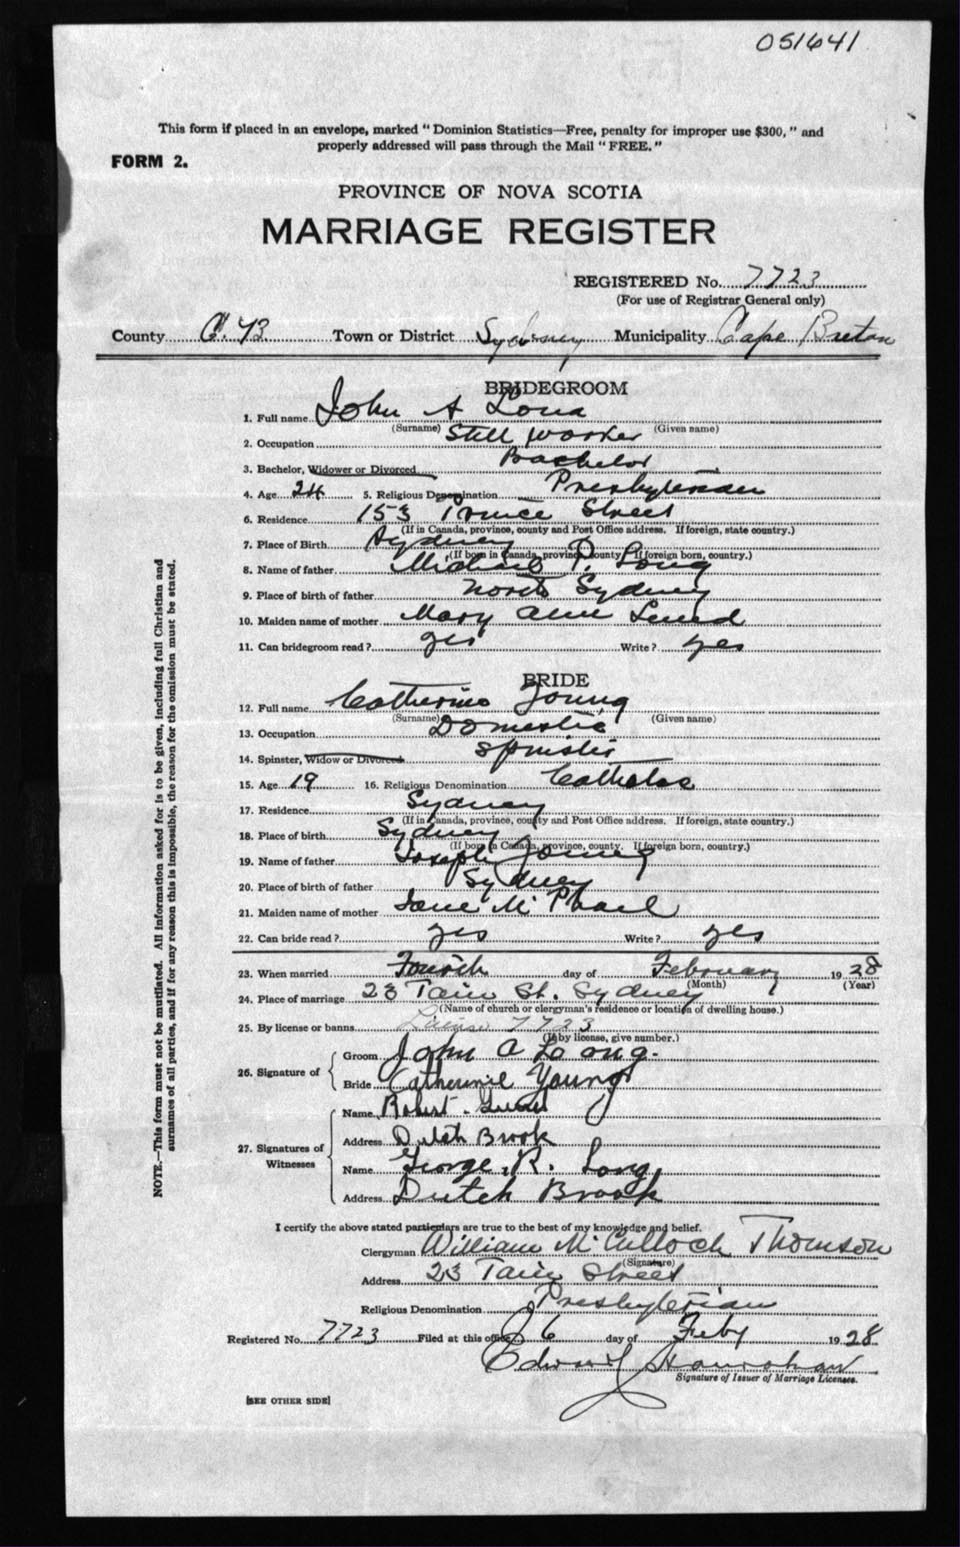 051641
This form if placed in an envelope, marked "Dominion Statistics—Free, penalty for improper use $300," and
properly addressed will pass through the Mail "FREE."
FORM 2.
PROVINCE OF NOVA SCOTIA
MARRIAGE REGISTER
REGISTERED No. 7723
(For use of Registrar General only)
County C.B Town or District Sydney Municipality Cape Breton
BRIDEGROOM
1. Full name John A Long
(Surname) (Given name)
2. Occupation Still worker
3. Bachelor, Widower or Divorced Bachelor
4. Age 24 5. Religious Denomination Presbyterian
6. Residence 153 Prince Street
(If in Canada, province, county and Post Office address. If foreign, state country.)
7. Place of Birth Sydney
(If born in Canada, province, county. If foreign born, country.)
8. Name of father Michael P. Long
9. Place of birth of father North Sydney
10. Maiden name of mother Mary Ann
11. Can bridegroom read? yes Write? yes
BRIDE
12. Full name Catherine Young
(Surname) (Given name)
13. Occupation Domestic
14. Spinster, Widow or Divorced Spinster
15. Age 19 16. Religious Denomination Catholic
17. Residence Sydney
(If in Canada, province, county and Post Office address. If foreign, state country.)
18. Place of birth Sydney
(If born in Canada, province, county. If foreign born, country.)
19. Name of father Joseph Young
20. Place of birth of father Sydney
21. Maiden name of mother Jane McPhail
22. Can bride read? yes Write? yes
23. When married Fourth day of February 1928
(Month) (Year)
24. Place of marriage 23 Tain St. Sydney
(Name of church or clergyman's residence or location of dwelling house.)
25. By license or banns License 7723
(If by license, give number.)
26. Signature of
Groom John A Long.
Bride Catherine Young
27. Signatures of Witnesses
Name Robert
Address Dutch Brook
Name George R. Long
Address Dutch Brook
I certify the above stated particulars are true to the best of my knowledge and belief.
Clergyman William McCulloch Thomson
(Signature)
Address 23 Tain Street
Religious Denomination Presbyterian
Registered No. 7723 Filed at this office 6 day of Feby 1928
Edward
Signature of Issuer of Marriage Licenses.
[SEE OTHER SIDE]
NOTE.—This form must not be mutilated. All information asked for is to be given, including full Christian and
surnames of all parties, and if for any reason this is impossible, the reason for the omission must be stated.